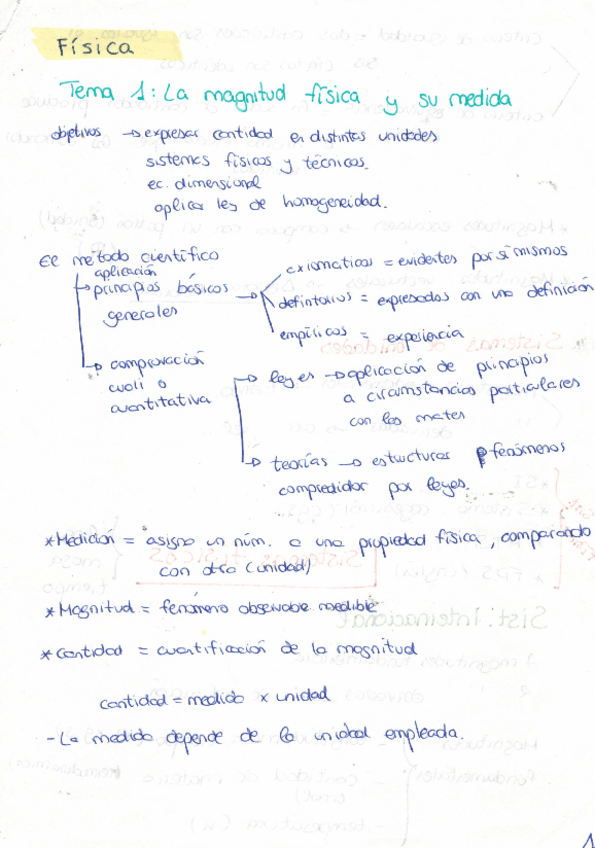 Física
Tema 1: La magnitud física y su medida
objetivos → expresar cantidad en distintas unidades
sistemas físicos y técnicos.
ec. dimensional
aplicar ley de homogeneidad.
El método científico
aplicación
principios básicos
generales
axiomáticos = evidentes por sí mismos
definitorios = expresados con una definición
empíricos = experiencia
comprovación
cuali o
cuantitativa
leyes → aplicación de principios
a circunstancias particulares
con las mates
teorías → estructuras fenómenos
por leyes.
*Medición = asigno un núm. a una propiedad física, comparando
con otra (unidad)
*Magnitud = fenómeno observable medible
*Cantidad = cuantificación de la magnitud
cantidad = medida x unidad
- La medida depende de la unidad empleada.
1